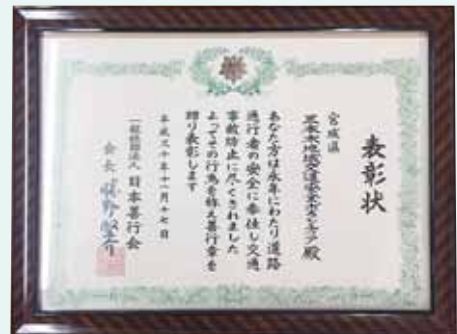 表彰状
宮城県
三本木地域交通安全ボランティア殿
あなた方は永年にわたり道路
通行者の安全に奉仕し交通
事故防止に尽くされました
よってその行為を称え善行章を
贈り表彰します
平成三十年十一月十七日
一般社団法人 日本善行会
会長